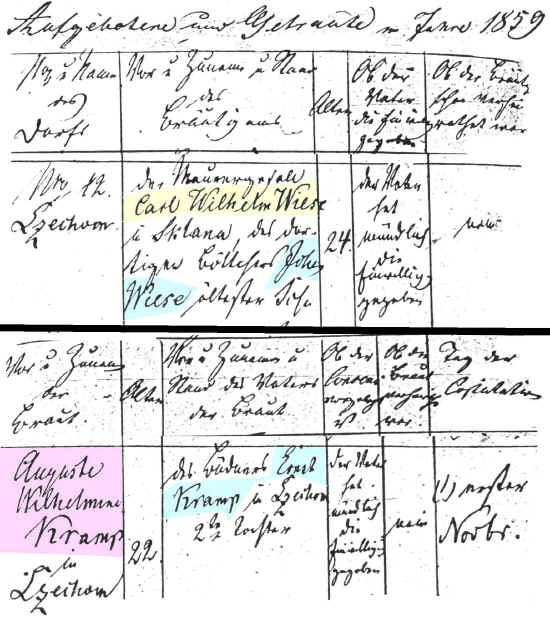 Aufgebotene und Getraute im Jahre 1859
No u Name
des
Dorfs
Vor u Zuname u Stand
des
Bräutigams
Alter
Ob der
Vater
die Einwilligung
gegeben
Ob der Bräutigam
schon verhei
rathet war
No. 12.
Czeihow
der Maurergeselle
Carl Wilhelm Wiese
in des dor
tigen Böttchers John
Wiese ältester Sohn
24.
der Vater
hat
mündlich
die
Einwillig
gegeben
nein
Vor u Zuname
der
Braut.
Alter
Vor u Zuname u
Stand des Vaters
der Braut.
Ob der
Ob die
Braut
war.
Tag der
Copulation
Auguste
Wilhelmine
Kramp
in
Czeihow
22.
des Büdners Ernst
Kramp in Czeihow
2te Tochter
der Vater
hat
mündlich
die
Einwillig
gegeben
nein
(1) erster
Novbr.